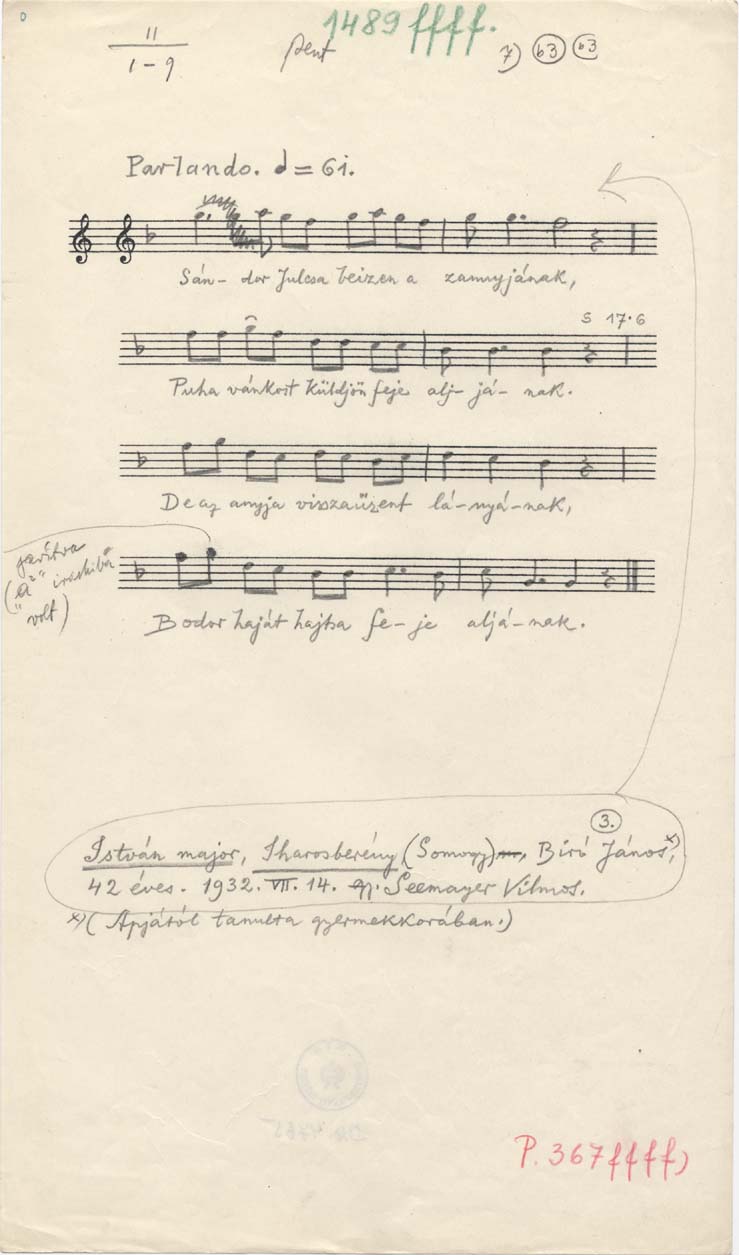 0
11
1-9
pent
1489 ffff.
7) b3 b3
Parlando. = 61.
Sán- dor Julcsa beizen a zannyjának,
S 17·6
Puha vánkost küldjön feje alj- já- nak.
De az annyja visszaüzent lá-nyá-nak,
javítva
("a" íráshiba
volt)
Bodor haját hajtsa fe- je aljá-nak.
3.
István major, Iharosberény (Somogy), Biró János x),
42 éves. 1932. VII. 14. gy. Seemayer Vilmos.
x) (Apjától tanulta gyermekkorában.)
P. 367 ffff)